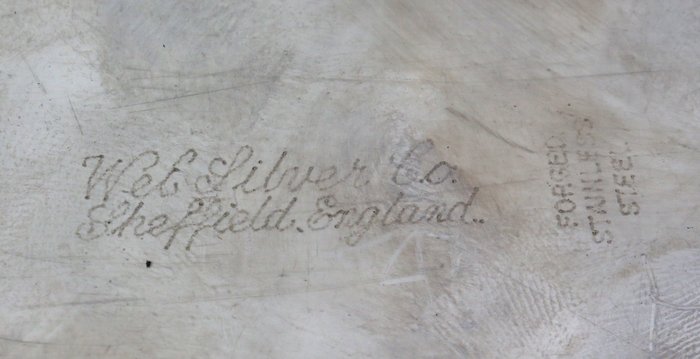 Web Silver Co.
Sheffield. England..
FORGED
STAINLESS
STEEL